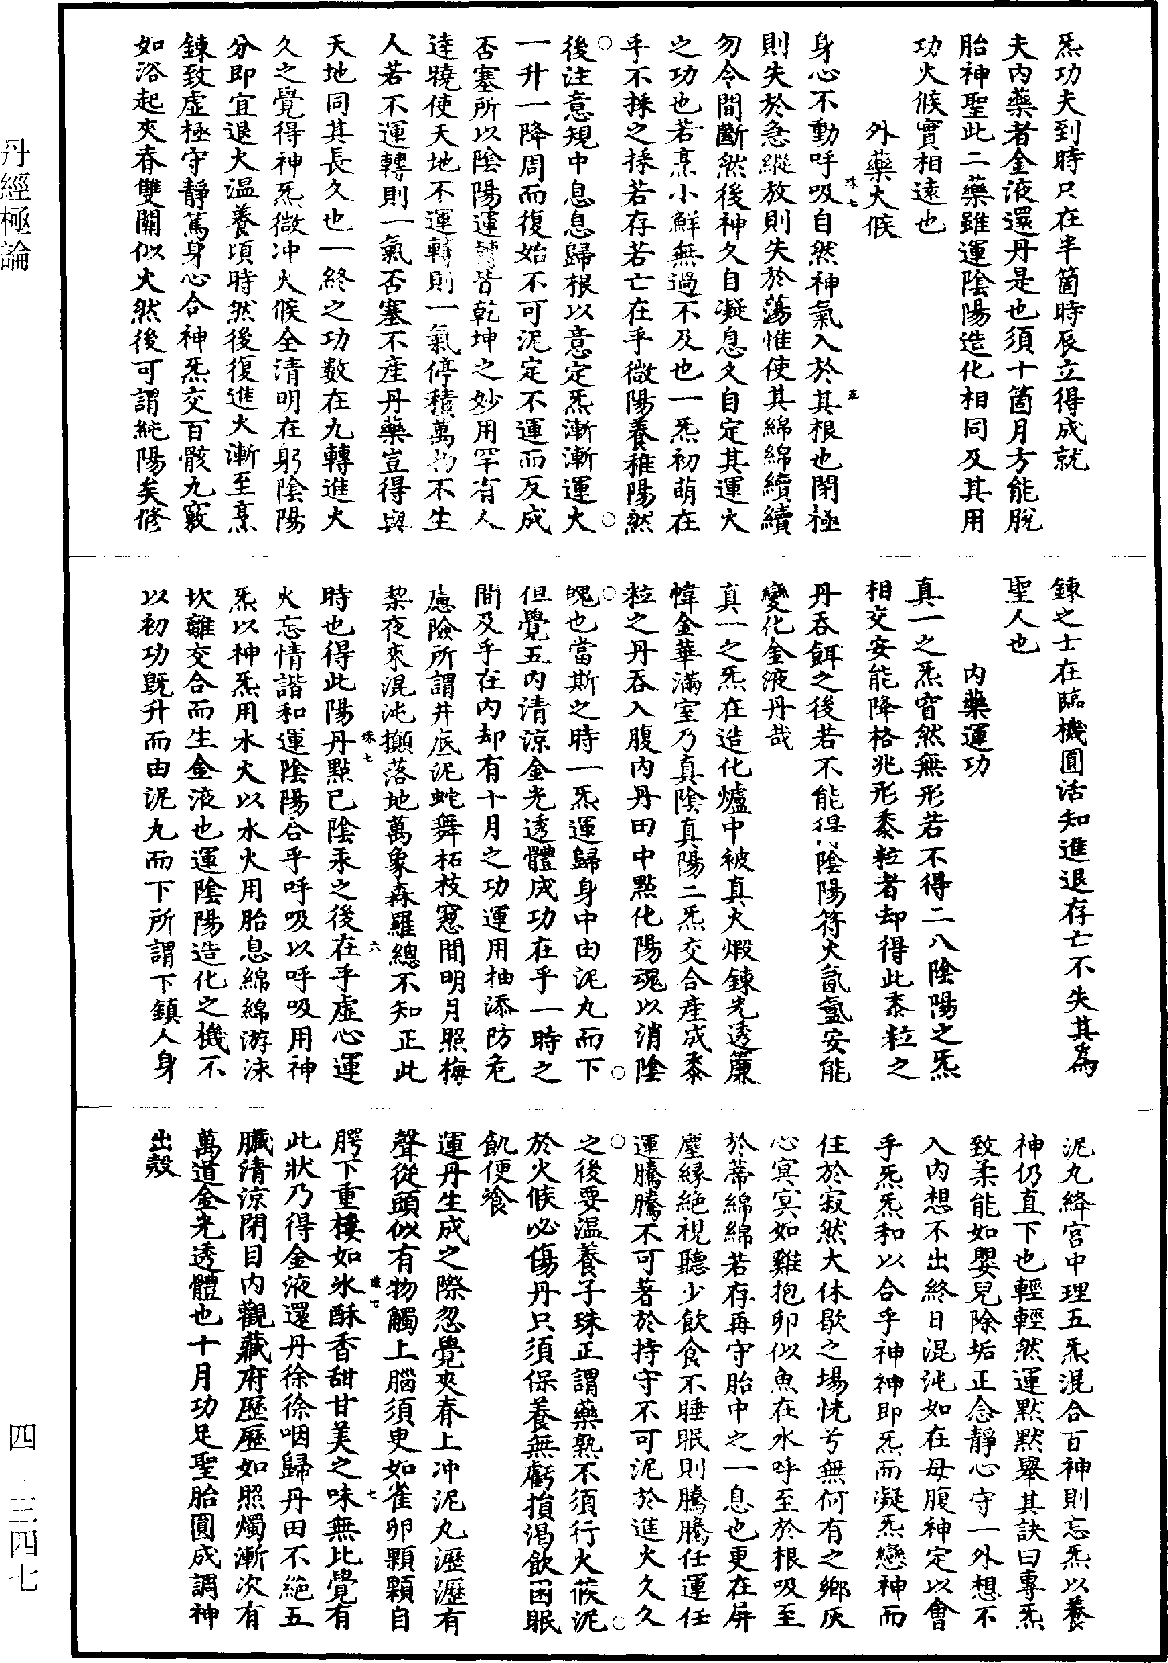 炁功夫到時只在半箇時辰立得成就
夫內藥者金液還丹是也須十箇月方能脫
胎神聖此二藥雖運陰陽造化相同及其用
功火候實相遠也
外藥火候
身心不動呼吸自然神氣入於其根也閉極
則失於急縱放則失於蕩惟使其綿綿續續
勿令間斷然後神久自凝息久自定其運火
之功也若烹小鮮無過不及也一炁初萌在
乎不採之採若存若亡在乎微陽養稚陽然
後注意規中息息歸根以意定炁漸漸運火
一升一降周而復始不可泥定不運而反成
否塞所以陰陽運轉皆乾坤之妙用罕有人
達曉使天地不運轉則一氣停積萬物不生
人若不運轉則一氣否塞不產丹藥豈得與
天地同其長久也一終之功數在九轉進火
久之覺得神炁微冲火候全清明在躬陰陽
分即宜退火溫養頃時然後復進火漸至烹
鍊致虛極守靜篤身心合神炁交百骸九竅
如浴起夾脊雙關似火然後可謂純陽矣修
鍊之士在臨機圓活知進退存亡不失其為
聖人也
內藥運功
真一之炁窅然無形若不得二八陰陽之炁
相交安能降格兆形黍粒者却得此黍粒之
丹吞餌之後若不能得陰陽符火氤氳安能
變化金液丹哉
真一之炁在造化爐中被真火煅鍊光透簾
幃金華滿室乃真陰真陽二炁交合產成黍
粒之丹吞入腹內丹田中點化陽魂以消陰
魄也當斯之時一炁運歸身中由泥丸而下
但覺五內清涼金光透體成功在乎一時之
間及乎在內却有十月之功運用抽添防危
慮險所謂井底泥蛇舞柘枝窻間明月照梅
棃夜來混沌攧落地萬象森羅總不知正此
時也得此陽丹點己陰汞之後在乎虛心運
火忘情諧和運陰陽合乎呼吸以呼吸用神
炁以神炁用水火以水火用胎息綿綿游泳
坎離交合而生金液也運陰陽造化之機不
以初功既升而由泥丸而下所謂下鎮人身
泥丸絳宮中理五炁混合百神則忘炁以養
神仍直下也輕輕然運默默舉其訣曰專炁
致柔能如嬰兒除垢正念靜心守一外想不
入內想不出終日混沌如在母腹神定以會
乎炁炁和以合乎神神即炁而凝炁戀神而
住於寂然大休歇之場恍兮無何有之鄉灰
心冥冥如雞抱卵似魚在水呼至於根吸至
於蒂綿綿若存再守胎中之一息也更在屏
塵緣絕視聽少飲食不睡眠則騰騰任運任
運騰騰不可著於持守不可泥於進火久久
之後要溫養子珠正謂藥熟不須行火候泥
於火候必傷丹只須保養無虧損渴飲困眠
飢便飡
運丹生成之際忽覺夾脊上冲泥丸瀝瀝有
聲從頭似有物觸上腦須臾如雀卵顆顆自
腭下重樓如氷酥香甜甘美之味無比覺有
此狀乃得金液還丹徐徐咽歸丹田不絕五
臟清涼閉目內觀藏府歷歷如照燭漸次有
萬道金光透體也十月功足聖胎圓成調神
出殼
丹經極論
四 三四七